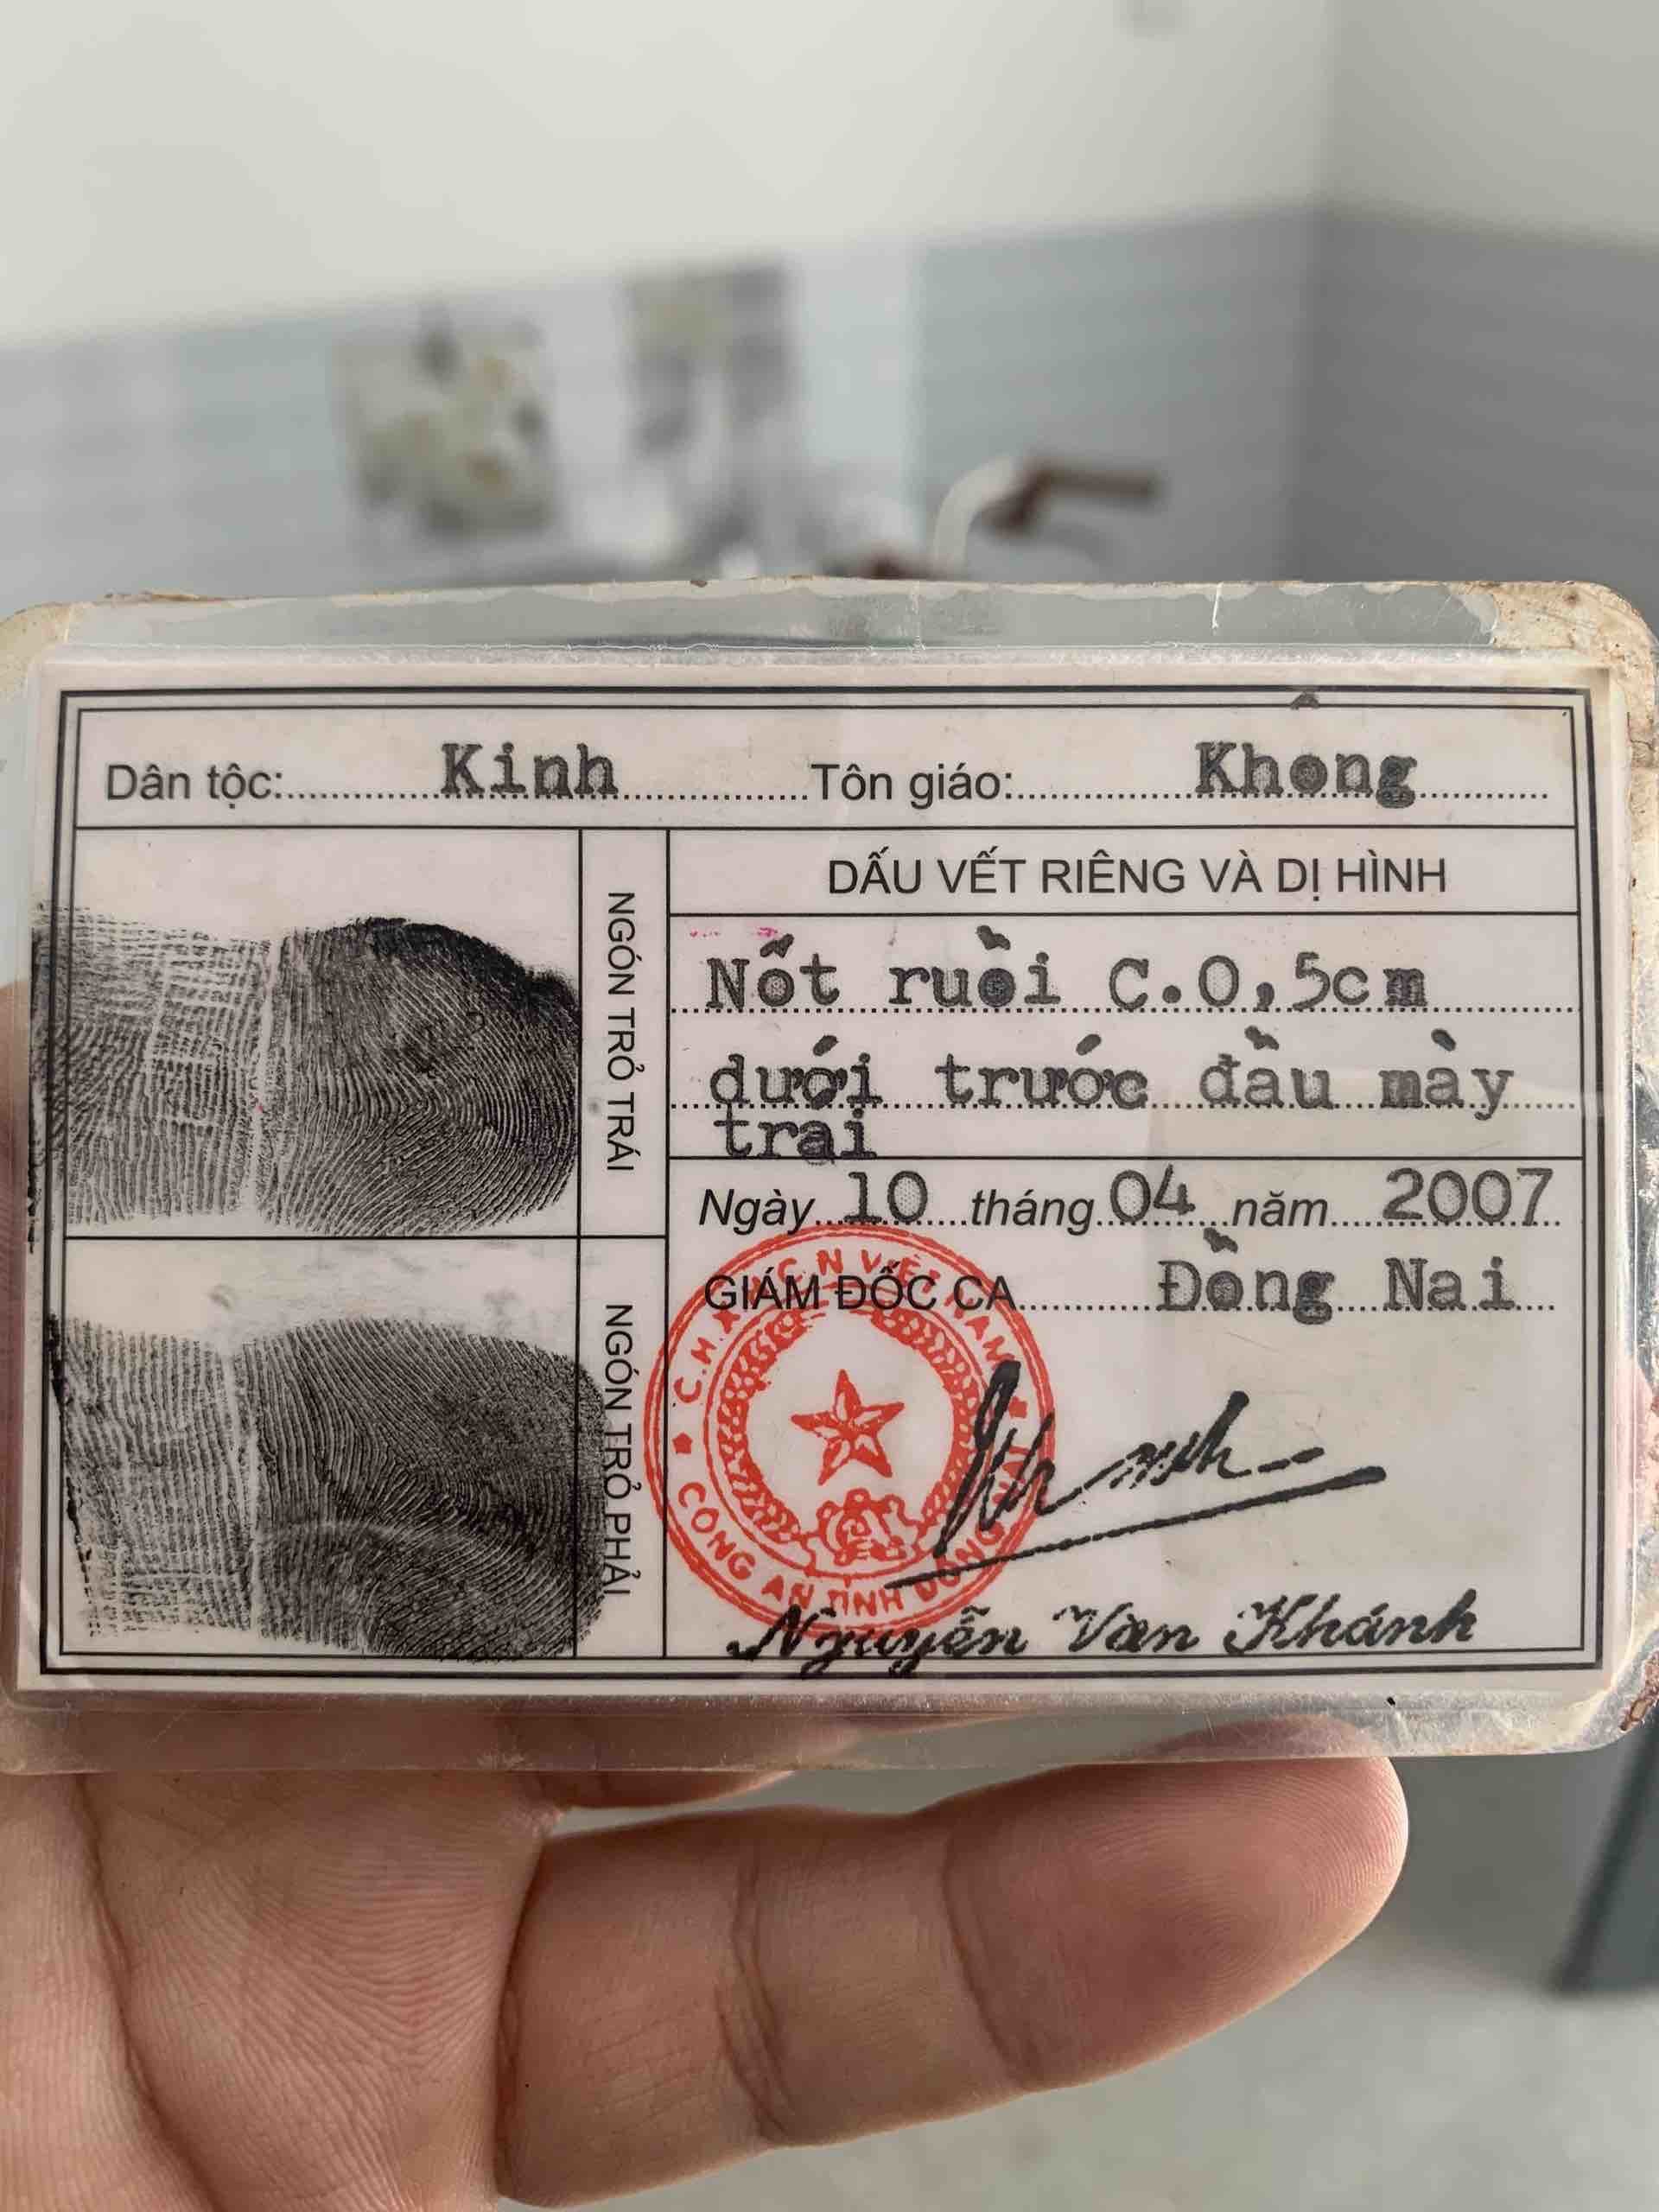 Dân tộc: Kinh Tôn giáo: Không
DẤU VẾT RIÊNG VÀ DỊ HÌNH
Nốt ruồi C.0,5cm
dưới trước đầu mày
trái
NGÓN TRỎ TRÁI
NGÓN TRỎ PHẢI
Ngày 10 tháng 04 năm 2007
GIÁM ĐỐC CA Đồng Nai
C.H.X.H.C.N VIỆT NAM
CÔNG AN TỈNH ĐỒNG NAI
Nguyễn Văn Khánh